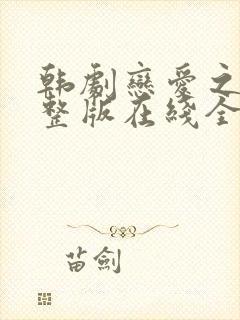 韩劇戀愛之
整版在綫全
苗劍